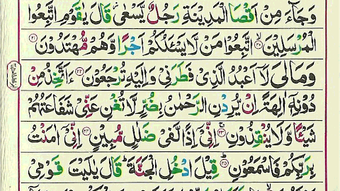 وَجَآءَ مِنْ اَقْصَا الْمَدِيْنَةِ رَجُلٌ يَّسْعٰى قَالَ يٰقَوْمِ اتَّبِعُوا
الْمُرْسَلِيْنَ ۲۰ اتَّبِعُوْا مَنْ لَّا يَسْـَٔلُكُمْ اَجْرًا وَّهُمْ مُّهْتَدُوْنَ ۲۱
وَمَا لِيَ لَآ اَعْبُدُ الَّذِيْ فَطَرَنِيْ وَاِلَيْهِ تُرْجَعُوْنَ ۲۲ ءَاَتَّخِذُ مِنْ
دُوْنِهٖٓ اٰلِهَةً اِنْ يُّرِدْنِ الرَّحْمٰنُ بِضُرٍّ لَّا تُغْنِ عَنِّيْ شَفَاعَتُهُمْ
شَيْـًٔا وَّلَا يُنْقِذُوْنِ ۲۳ اِنِّيْٓ اِذًا لَّفِيْ ضَلٰلٍ مُّبِيْنٍ ۲۴ اِنِّيْٓ اٰمَنْتُ
بِرَبِّكُمْ فَاسْمَعُوْنِ ۲۵ قِيْلَ ادْخُلِ الْجَنَّةَ قَالَ يٰلَيْتَ قَوْمِيْ